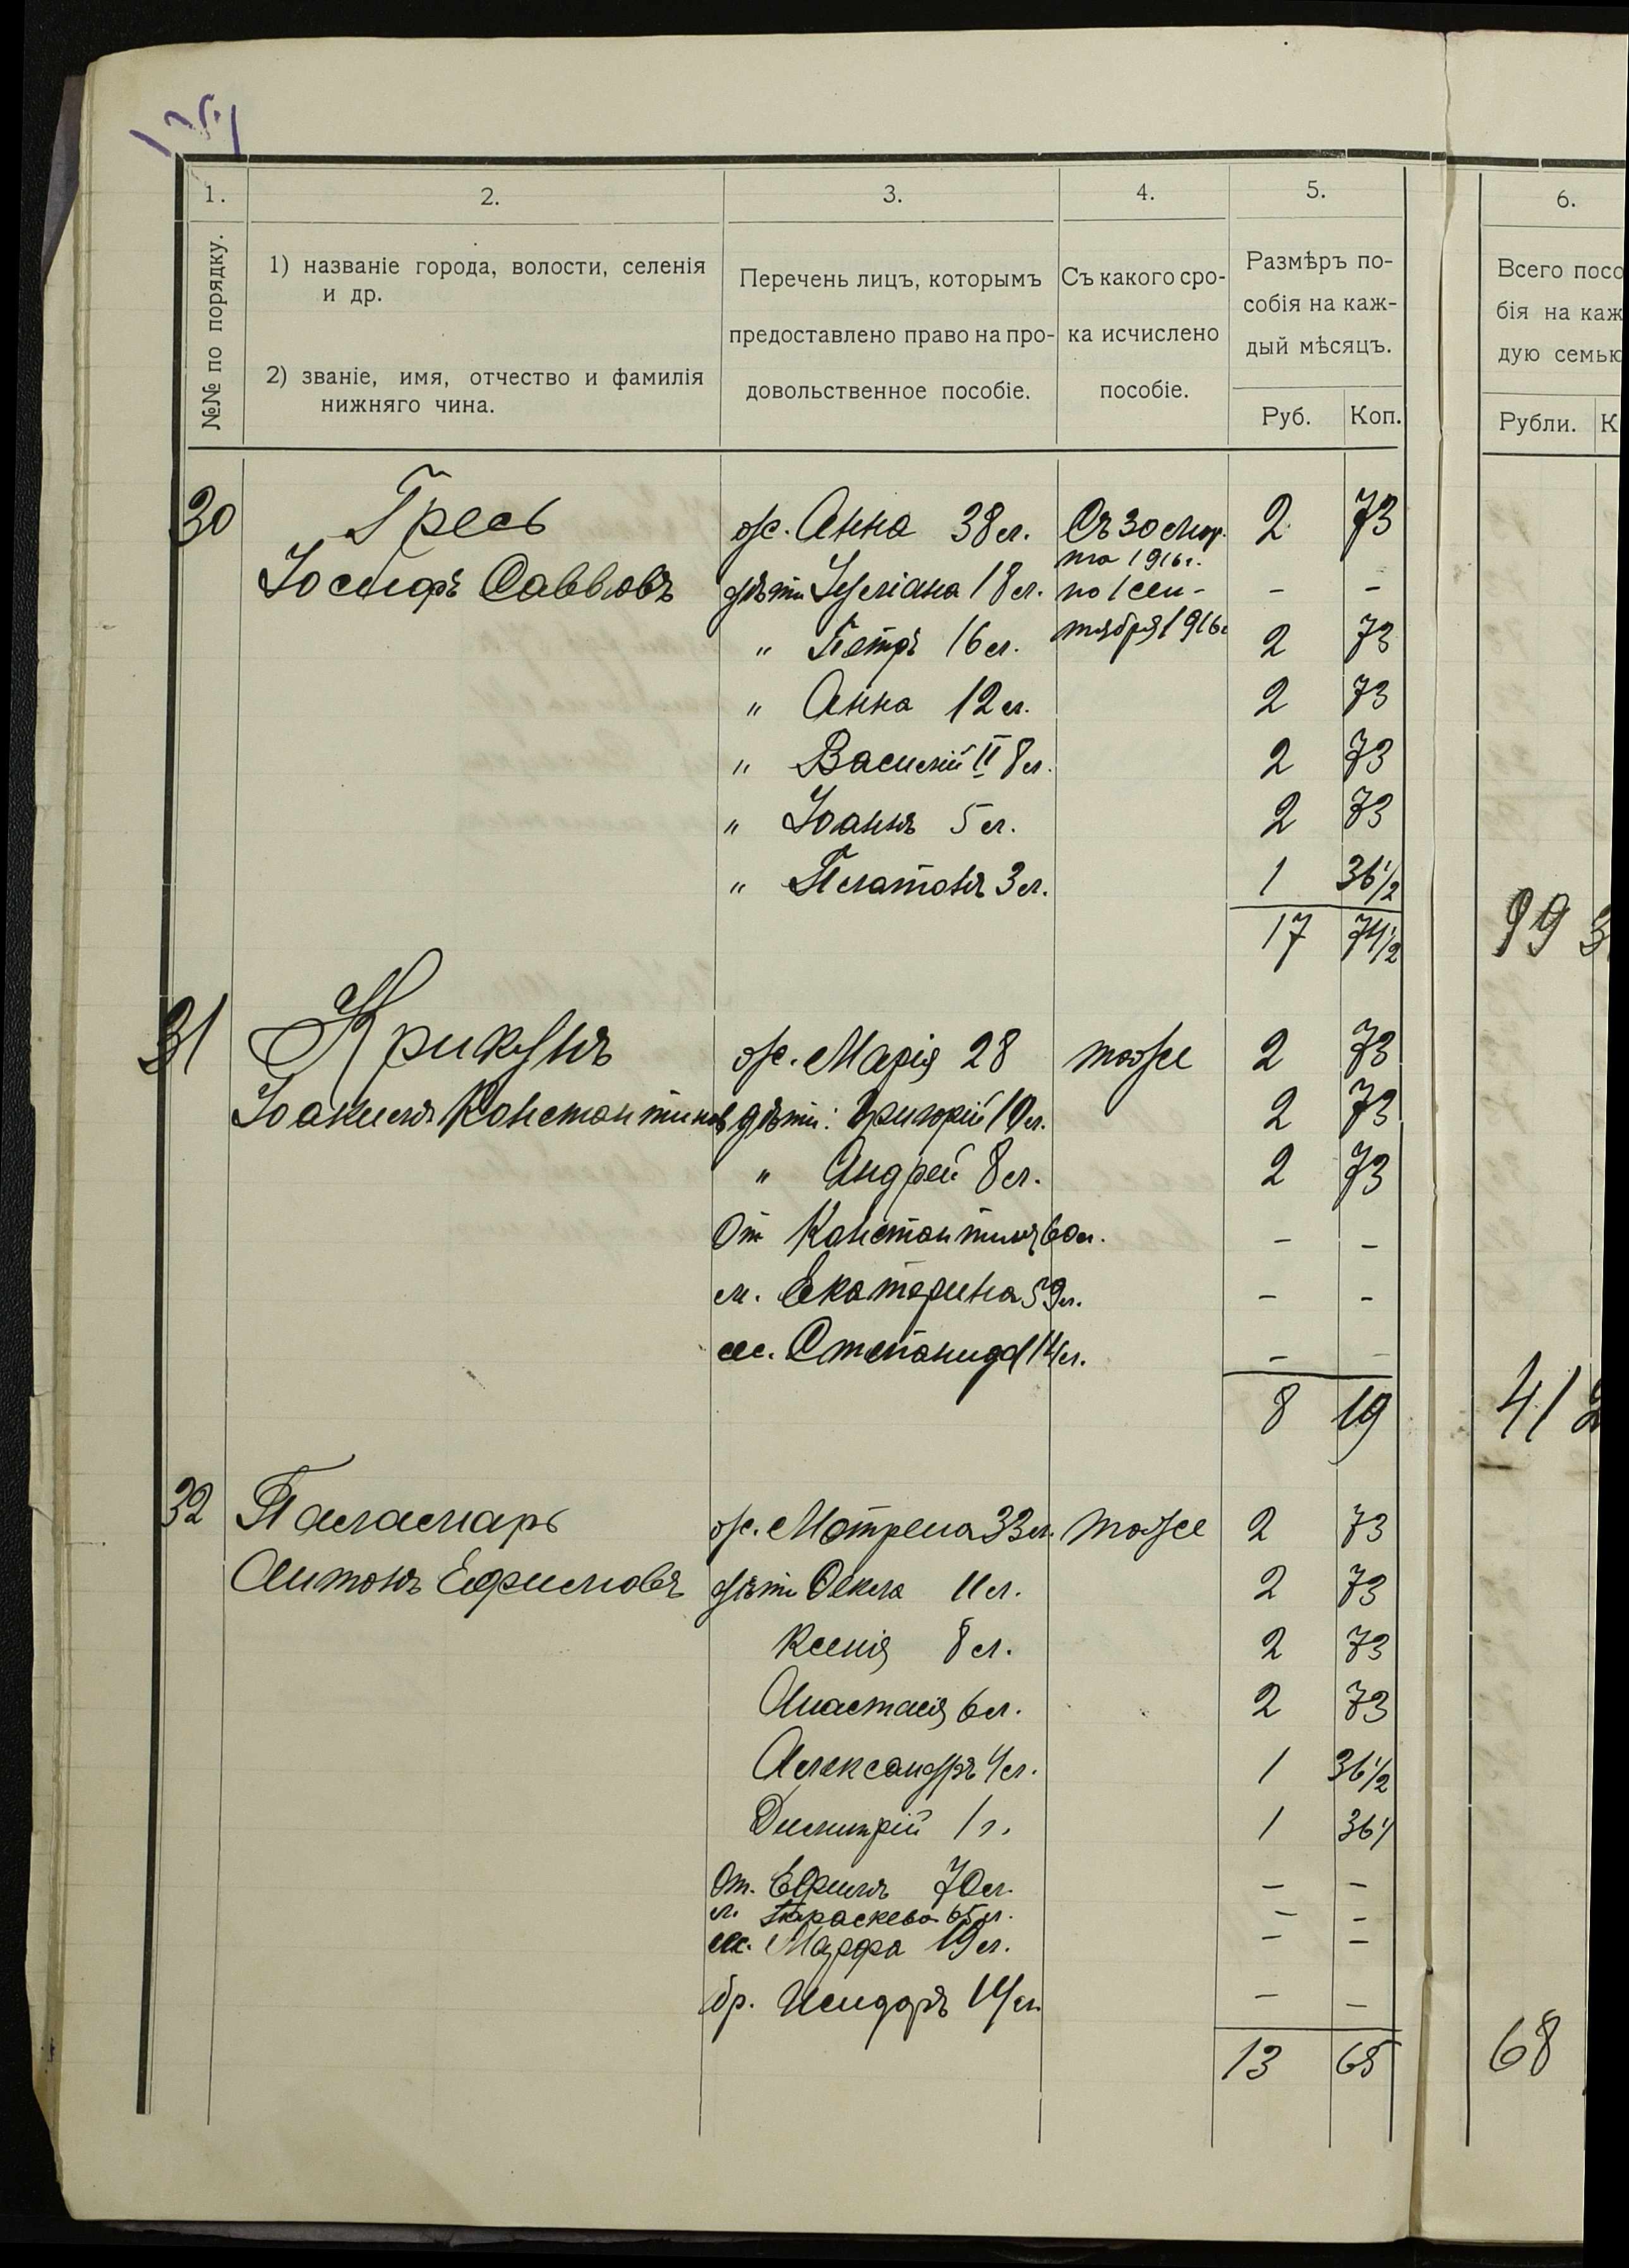 1. 2. 3. 4. 5. 6.
№№ по порядку.
1) названіе города, волости, селенія
и др.
2) званіе, имя, отчество и фамилія
нижняго чина.
Перечень лицъ, которымъ
предоставлено право на про-
довольственное пособіе.
Съ какого сро-
ка исчислено
пособіе.
Размѣръ по-
собія на каж-
дый мѣсяцъ.
Руб. Коп.
Всего посо
бія на каж
дую семью
Рубли. К
30 Гресь ж. Анна 38 л. Съ 30 мар- 2 73
та 1916 г.
Іосифъ Саввовъ дѣти Іуліана 18 л. по 1 сен- - -
" Петръ 16 л. тября 1916 г 2 73
" Анна 12 л. 2 73
" Василій II 8 л. 2 73
" Іоаннъ 5 л. 2 73
" Платонъ 3 л. 1 36 1/2
17 74 1/2 99 3
31 Крикунъ ж. Марія 28 тоже 2 73
Іоакимъ Константинов дѣти: Григорій 10 л. 2 73
" Андрей 8 л. 2 73
От Константинъ 60 л. - -
м. Екатерина 59 л. - -
с. Степанида 14 л. - -
8 19 41 2
32 Паламарь ж. Мотрена 33 л. тоже 2 73
Антонъ Ефимовъ дѣти Фекла 11 л. 2 73
Ксенія 8 л. 2 73
Анастасія 6 л. 2 73
Александръ 4 л. 1 36 1/2
Димитрій 1 г. 1 36 1/
От. Ефимъ 70 л. - -
м. Параскева 65 л. - -
с. Марфа 19 л. - -
бр. Исидоръ 14 л. - -
13 65 68